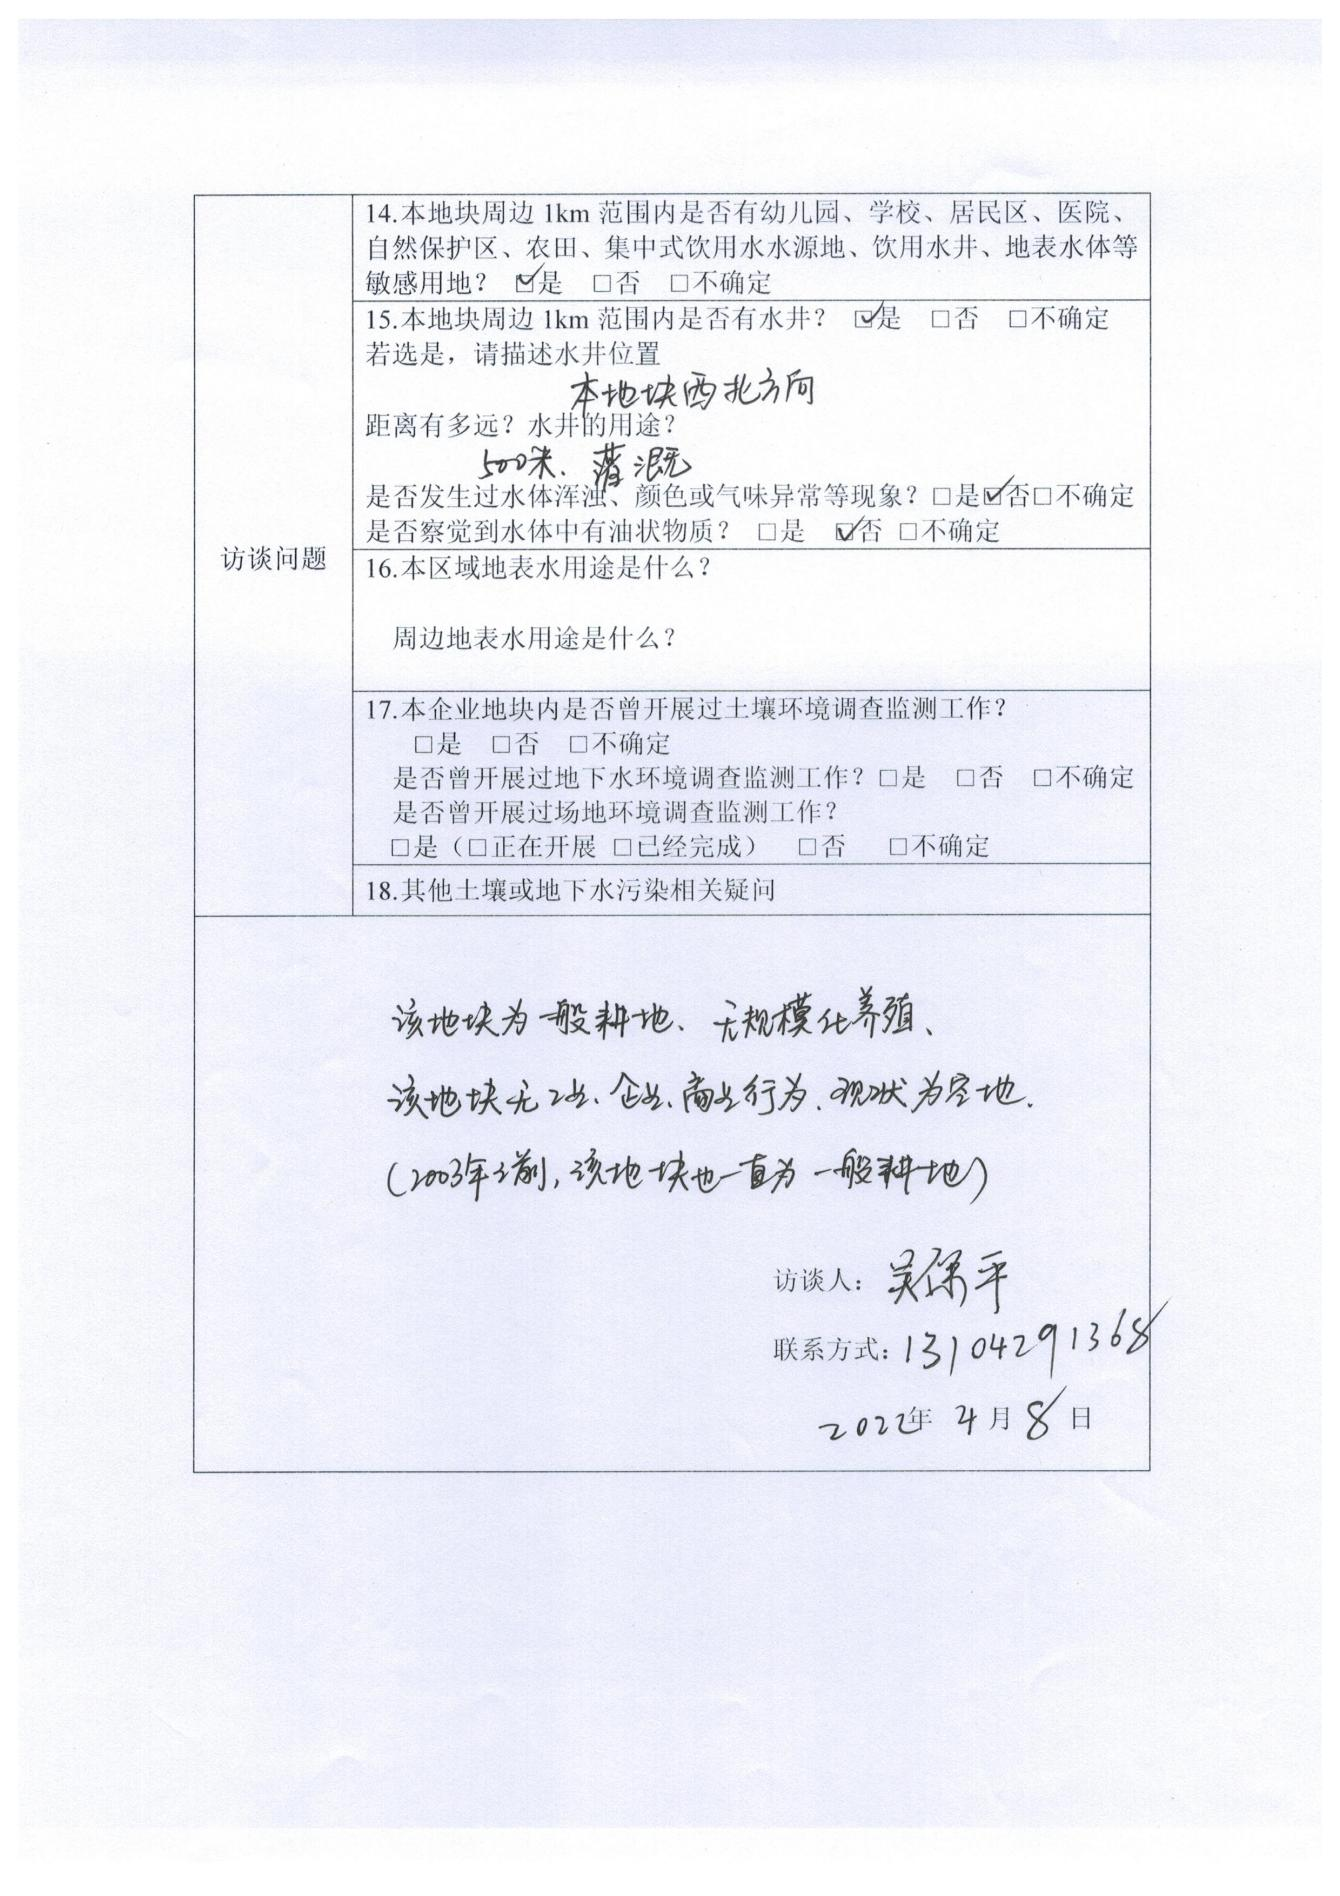 14.本地块周边 1km 范围内是否有幼儿园、学校、居民区、医院、
自然保护区、农田、集中式饮用水水源地、饮用水井、地表水体等
敏感用地？ ☑是 □否 □不确定
15.本地块周边 1km 范围内是否有水井？ ☑是 □否 □不确定
若选是，请描述水井位置
本地块西北方向
距离有多远？水井的用途？
500米、灌溉
是否发生过水体浑浊、颜色或气味异常等现象？□是☑否□不确定
是否察觉到水体中有油状物质？ □是 ☑否 □不确定
访谈问题
16.本区域地表水用途是什么？
周边地表水用途是什么？
17.本企业地块内是否曾开展过土壤环境调查监测工作？
□是 □否 □不确定
是否曾开展过地下水环境调查监测工作？□是 □否 □不确定
是否曾开展过场地环境调查监测工作？
□是（□正在开展 □已经完成） □否 □不确定
18.其他土壤或地下水污染相关疑问
该地块为一般耕地、无规模化养殖、
该地块无工业、企业、商业行为、现状为空地.
(2003年之前,该地块也一直为一般耕地)
访谈人：吴保平
联系方式：13104291368
2022年 4月 8日